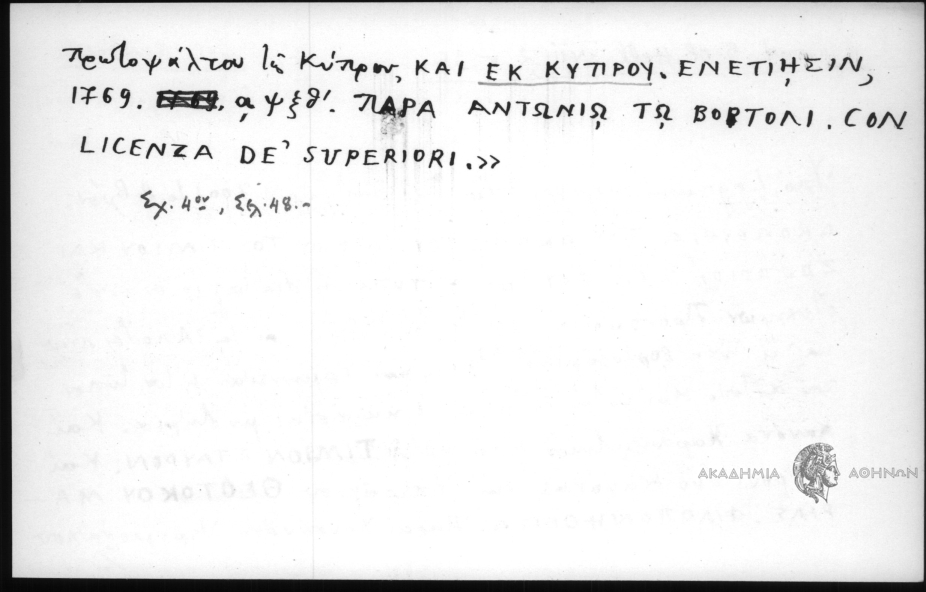 πρωτοψάλτου τῆς Κύπρου, ΚΑΙ ΕΚ ΚΥΠΡΟΥ. ΕΝΕΤΙῌΣΙΝ,
1769. α͵ψξθ'. ΠΑΡΑ ΑΝΤΩΝΙῼ Τῼ ΒΟΡΤΟΛΙ. CON
LICENZA DE' SUPERIORI.>>
Σχ. 4ον, Σελ. 48.-
ΑΚΑΔΗΜΙΑ ΑΘΗΝΩΝ